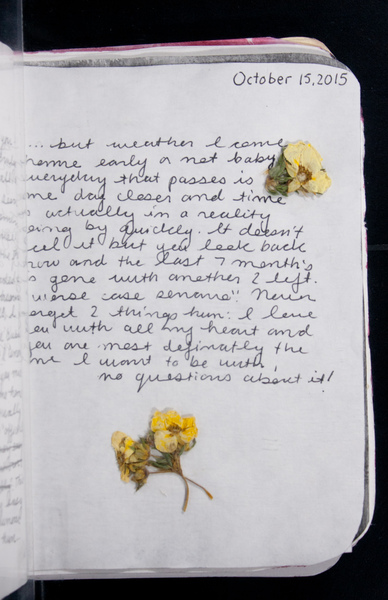 October 15, 2015
... but weather I come
home early or not baby
everyday that passes is
one day closer and time
is actually in a reality
going by quickly. It doesn't
feel it but you look back
now and the last 7 month's
is gone with another 2 left.
"worse case senario". Never
forget 2 things hun: I love
you with all my heart and
you are most definatly the
one I want to be with,
no questions about it!